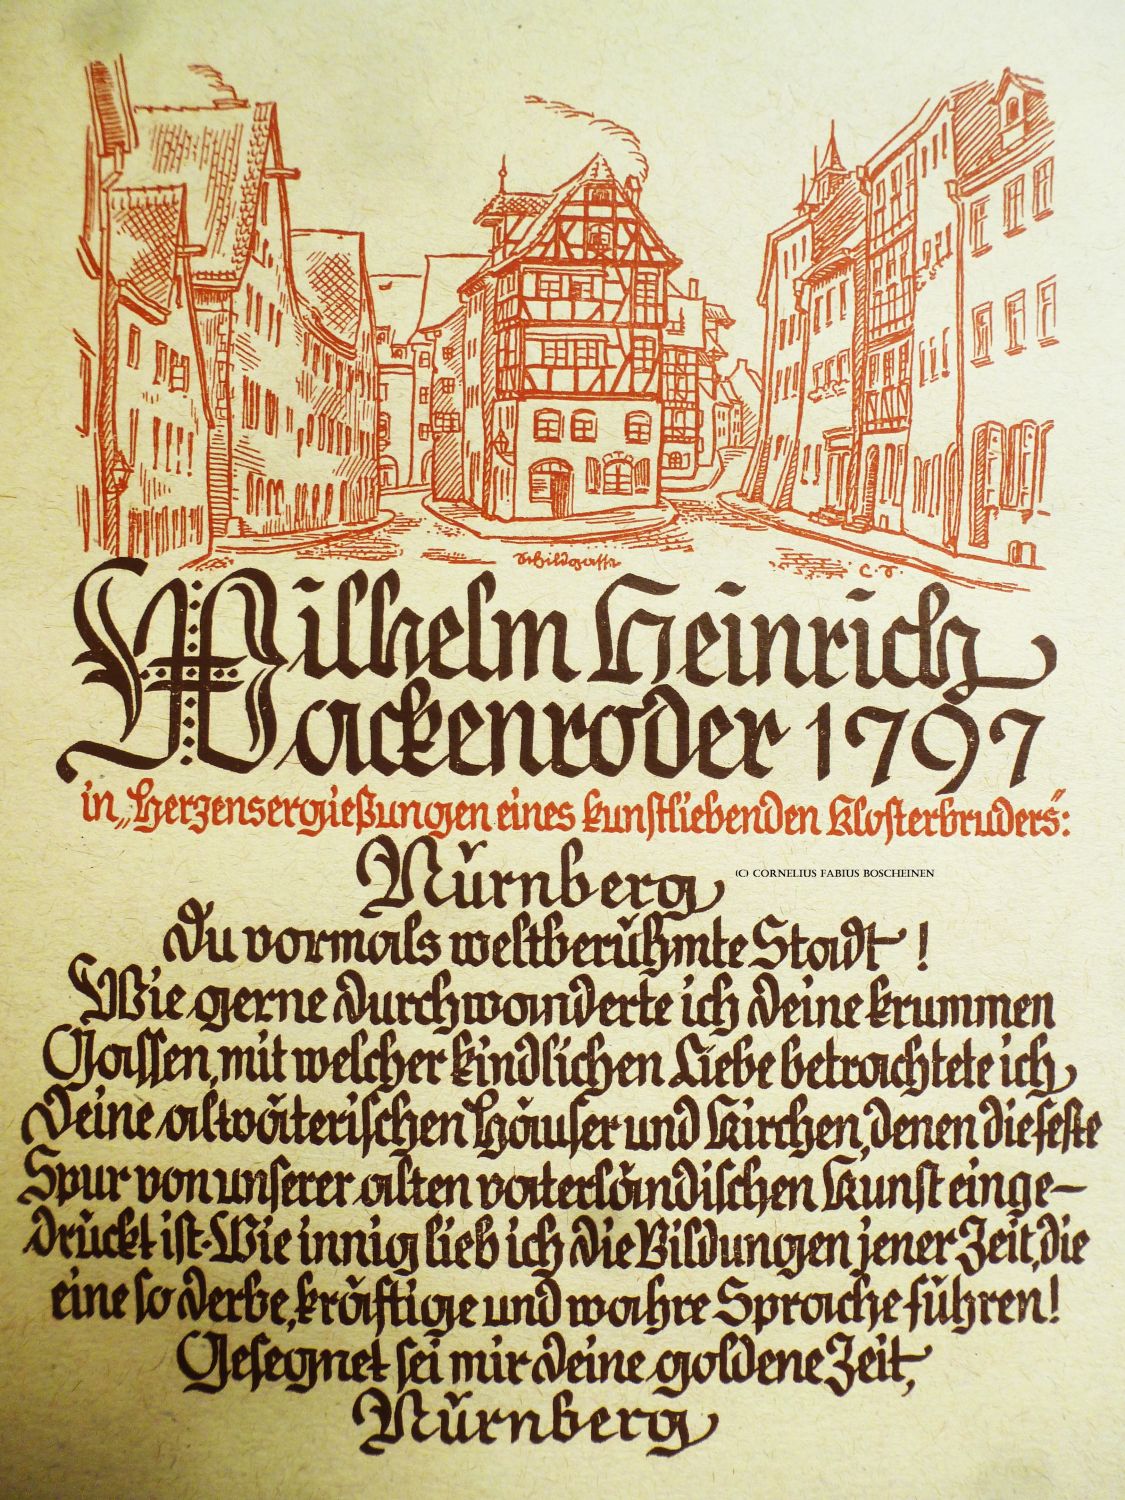 Schildgasse
C.T.
Wilhelm Heinrich
Wackenroder 1797
in „Herzensergießungen eines kunstliebenden Klosterbruders":
Nürnberg
(C) CORNELIUS FABIUS BOSCHEINEN
du vormals weltberühmte Stadt !
Wie gerne durchwanderte ich deine krummen
Gassen, mit welcher kindlichen Liebe betrachtete ich
deine altväterischen Häuser und Kirchen, denen die feste
Spur von unserer alten vaterländischen Kunst einge-
drückt ist. Wie innig lieb ich die Bildungen jener Zeit, die
eine so derbe, kräftige und wahre Sprache führen!
Gesegnet sei mir deine goldene Zeit,
Nürnberg